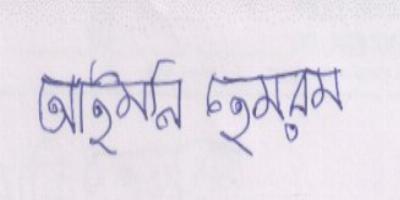 আইমনি হেমরম